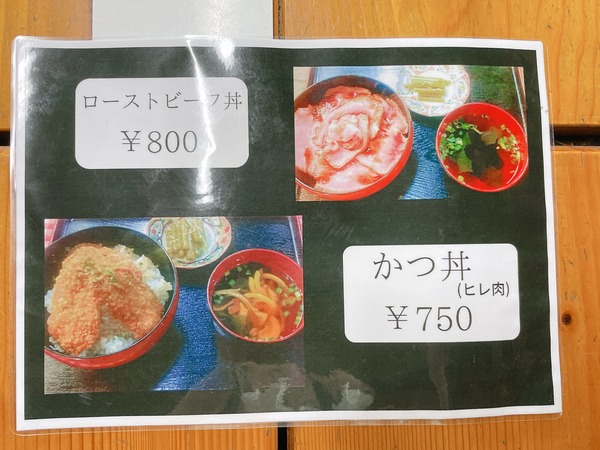 ローストビーフ丼
￥800
かつ丼
(ヒレ肉)
￥750